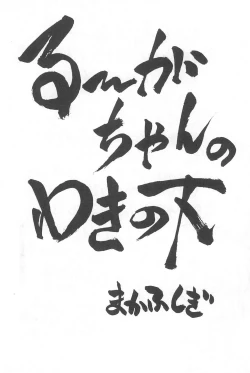 る〜がちゃんの
わきの下
まかふしぎ